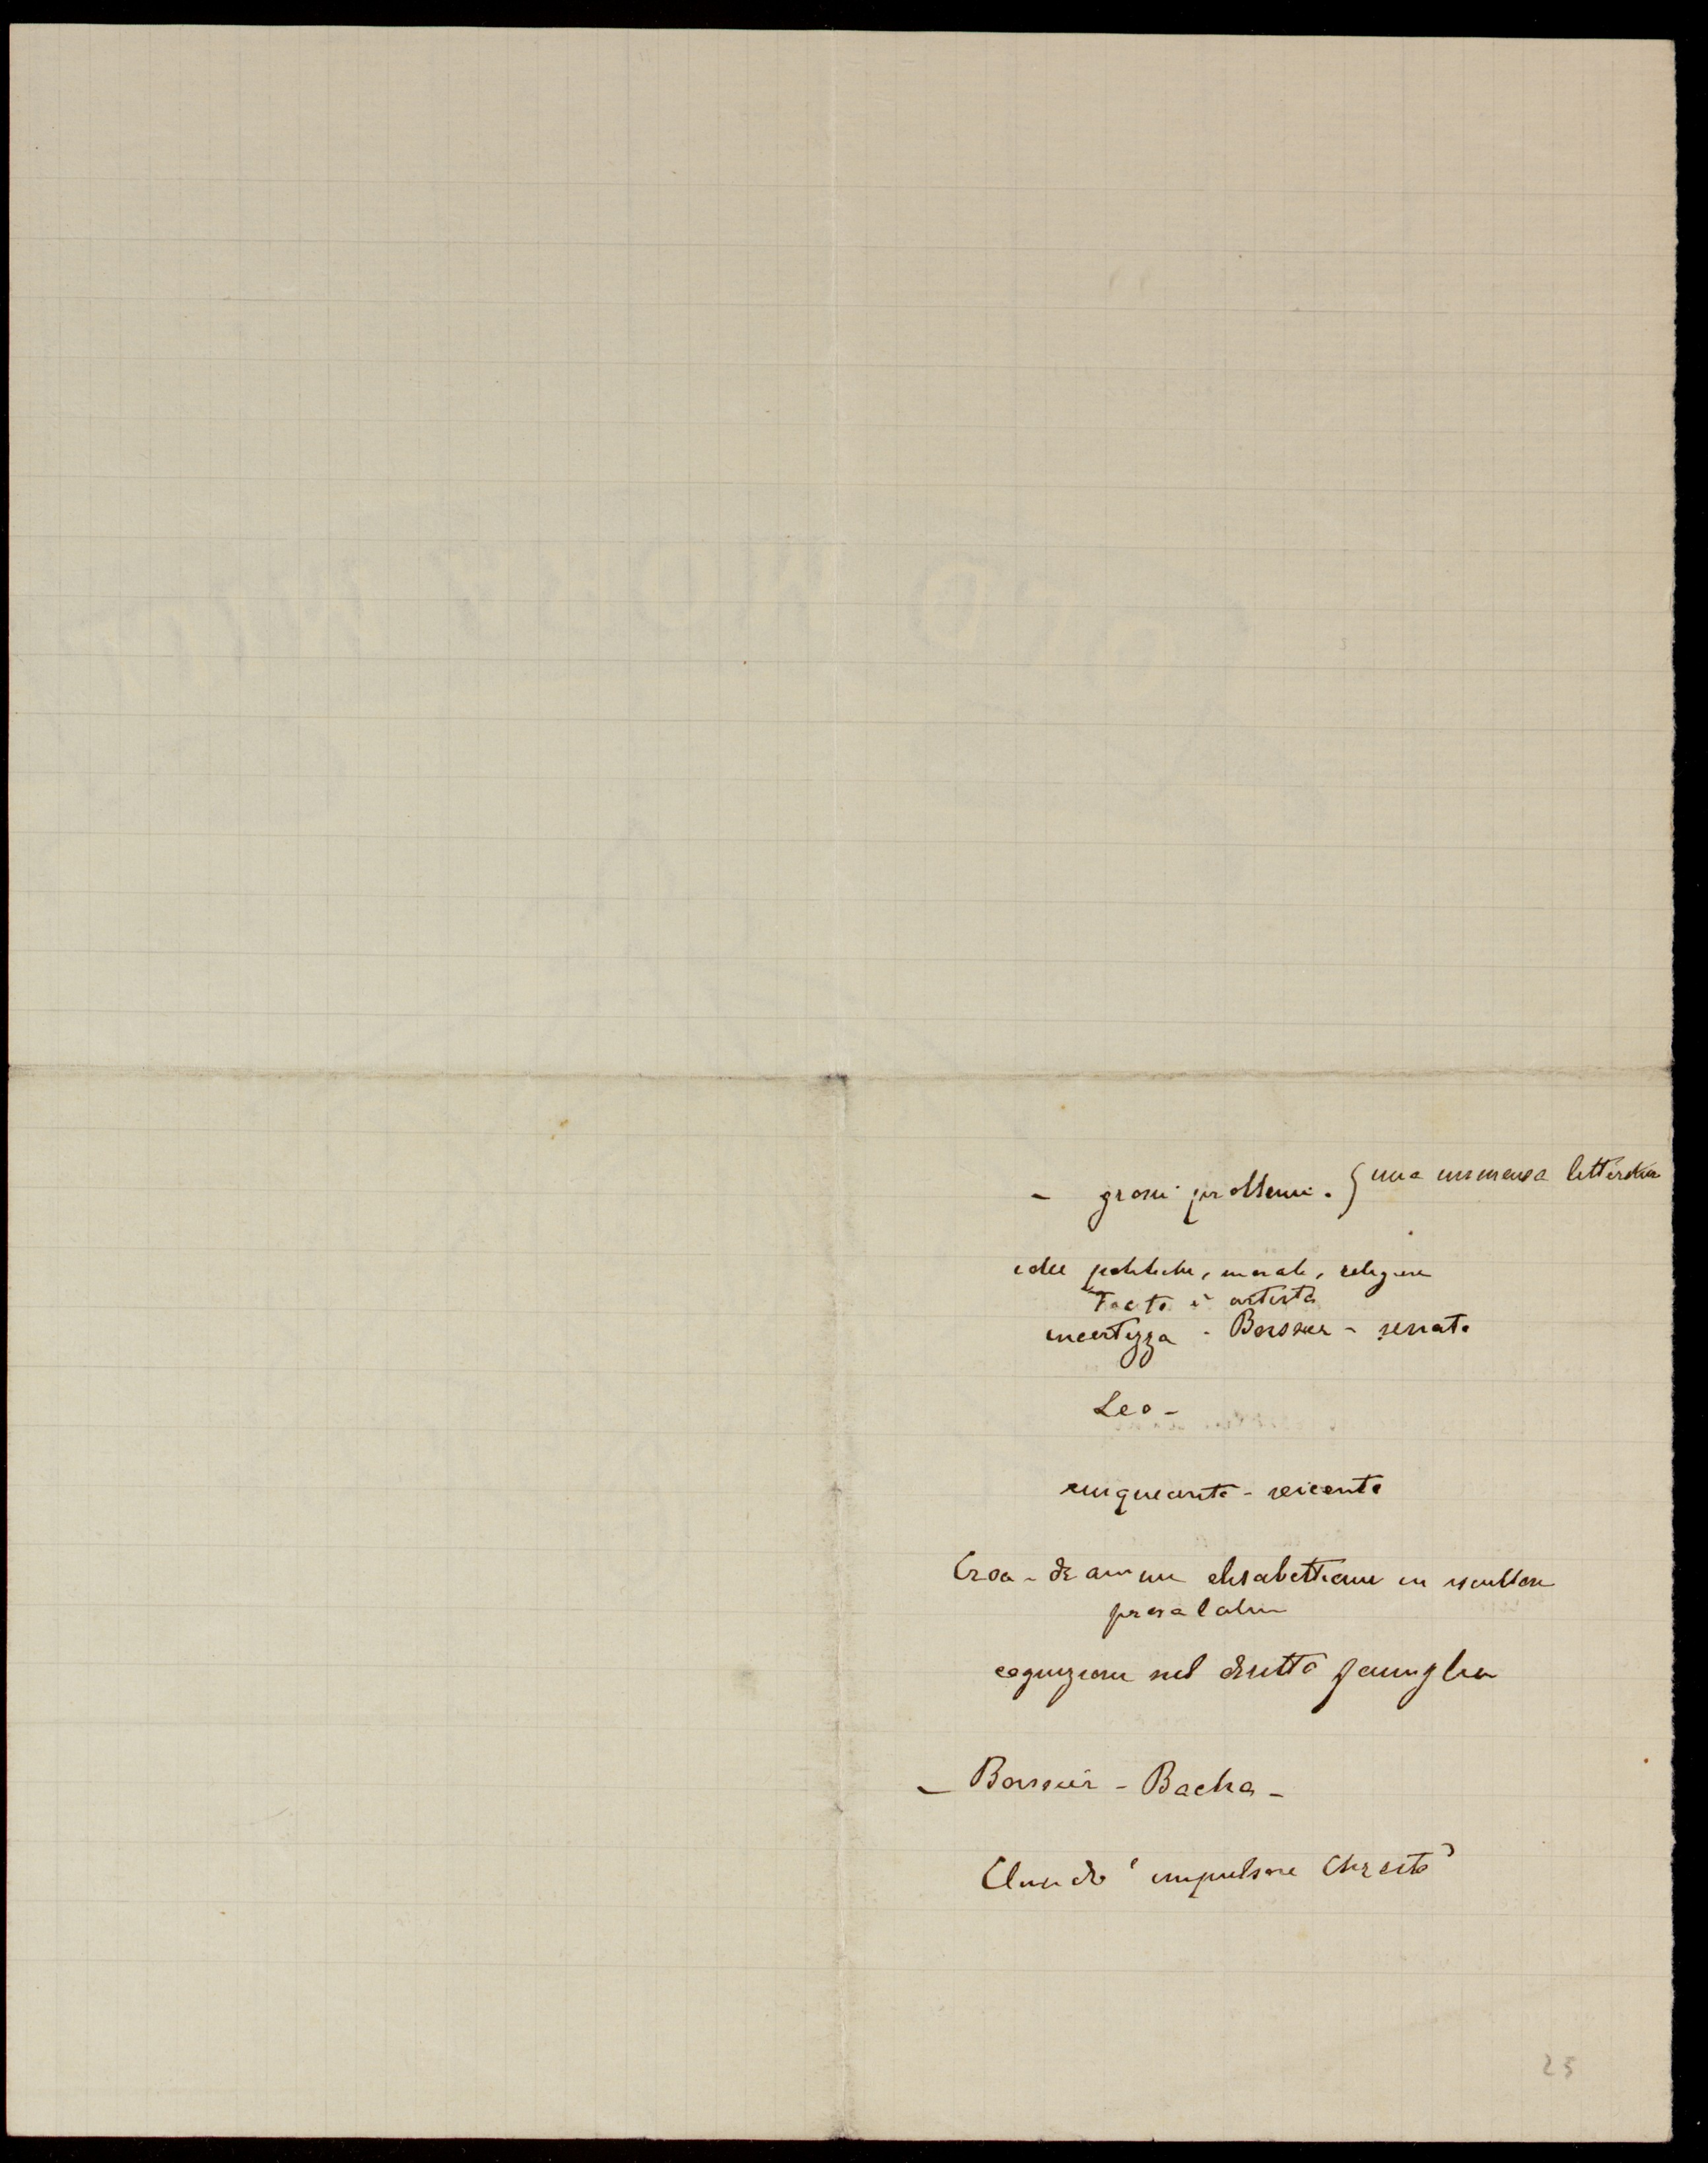 - grossi problemi. { una immensa letteratura
idee politiche, morali, religiose
Tacito è artista
incertezza - Boissier - senato
Leo -
cinquecento - seicento
drammi elisabettiani in
prosa latina
cognizioni sul diritto famiglia
- Boissier - Bacha -
Claudio "impulsore Chresto"
25